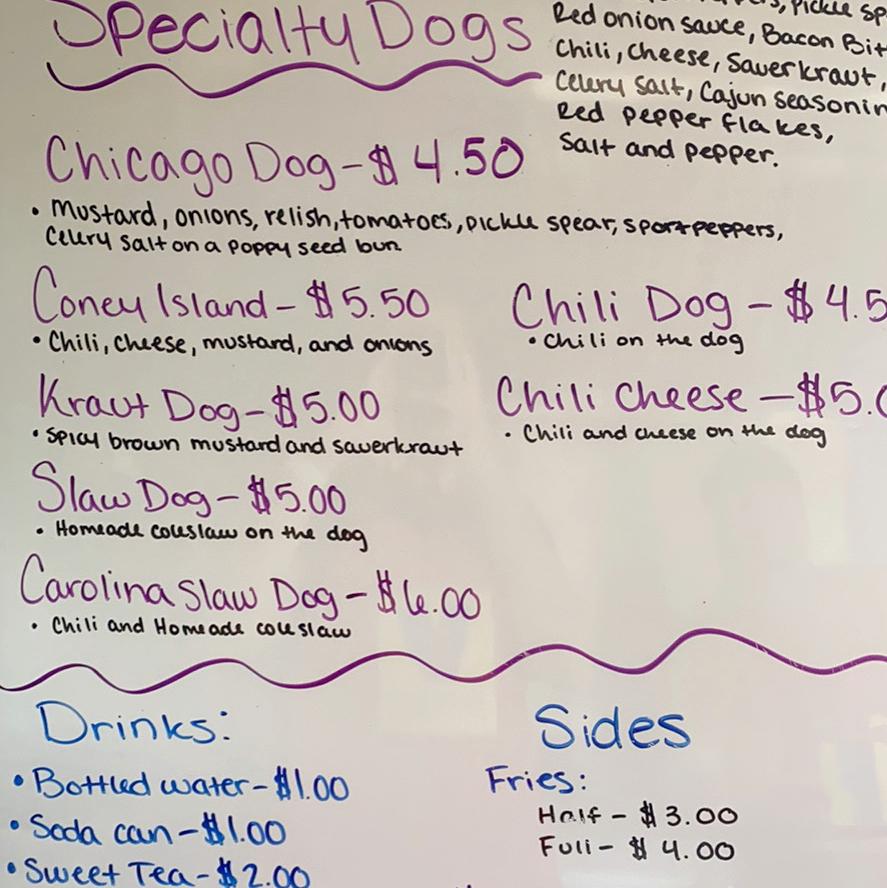 Specialty Dogs
Pickle
Red onion sauce, Bacon
Chili, cheese, Sauerkraut,
Celery salt, Cajun
Red pepper flakes,
Salt and pepper.
Chicago Dog - $4.50
• Mustard, onions, relish, tomatoes, pickle spear, sport peppers,
Celery salt on a poppy seed bun
Coney Island - $5.50
• Chili, cheese, mustard, and onions
Chili Dog - $4.5
• Chili on the dog
Kraut Dog - $5.00
• Spicy brown mustard and sauerkraut
Chili Cheese - $5.
• Chili and cheese on the dog
Slaw Dog - $5.00
• Homeade coleslaw on the dog
Carolina Slaw Dog - $6.00
• Chili and Homeade coleslaw
Drinks:
• Bottled water - $1.00
• Soda can - $1.00
• Sweet Tea - $2.00
Sides
Fries:
Half - $3.00
Full - $4.00